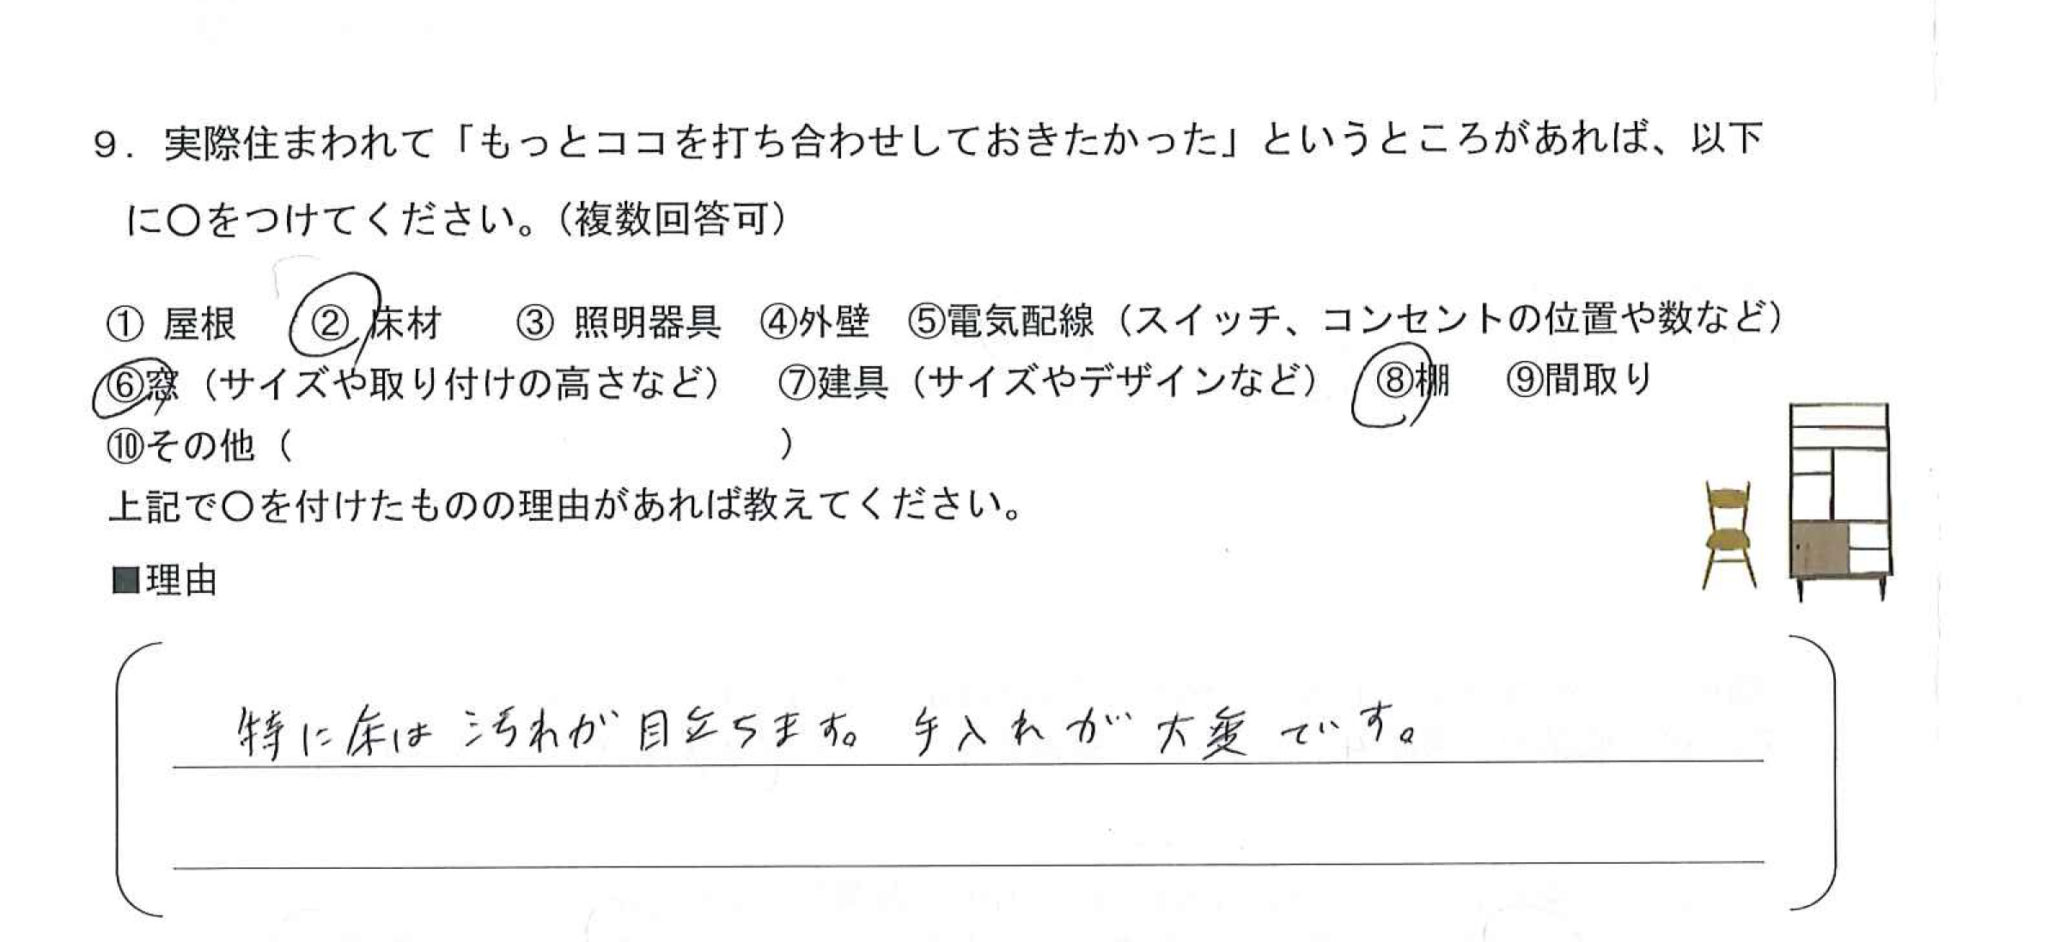 ９．実際住まわれて「もっとココを打ち合わせしておきたかった」というところがあれば、以下
に〇をつけてください。（複数回答可）
① 屋根　② 床材　③ 照明器具　④外壁　⑤電気配線（スイッチ、コンセントの位置や数など）
⑥窓（サイズや取り付けの高さなど）　⑦建具（サイズやデザインなど）　⑧棚　⑨間取り
⑩その他（　　　　　　　　　　　　　）
上記で〇を付けたものの理由があれば教えてください。
■理由
特に床は汚れが目立ちます。手入れが大変です。